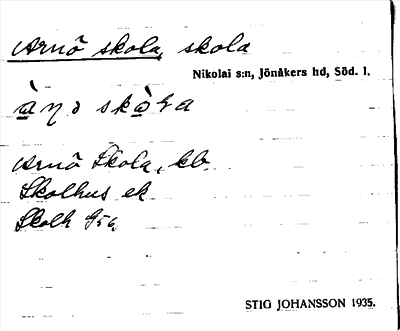 Arnö skola, skola
Nikolai s:n, Jönåkers hd, Söd. l.
Arnö Skola, kb.
Skolhus ek
Skolh G56
STIG JOHANSSON 1935.